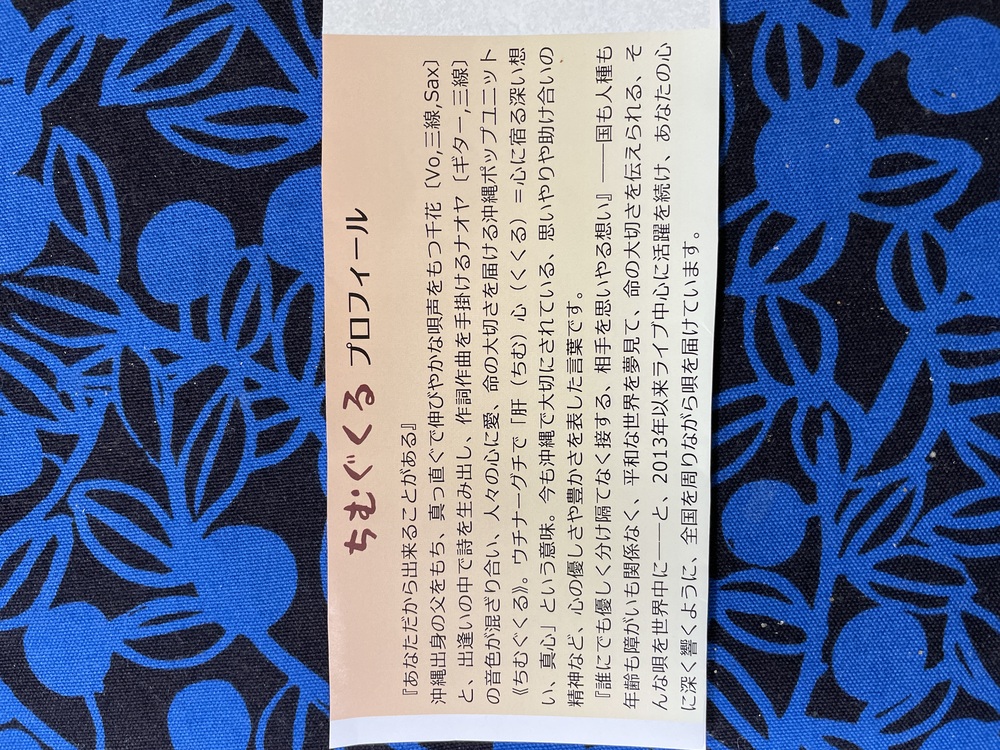 ちむぐくる プロフィール
『あなただから出来ることがある』
沖縄出身の父をもち、真っ直ぐで伸びやかな唄声をもつ千花〔Vo,三線,Sax〕
と、出逢いの中で詩を生み出し、作詞作曲を手掛けるナオヤ〔ギター,三線〕
の音色が混ざり合い、人々の心に愛、命の大切さを届ける沖縄ポップユニット
《ちむぐくる》。ウチナーグチで「肝（ちむ）心（くくる）＝心に宿る深い想
い、真心」という意味。今も沖縄で大切にされている、思いやりや助け合いの
精神など、心の優しさや豊かさを表した言葉です。
『誰にでも優しく分け隔てなく接する、相手を思いやる想い』――国も人種も
年齢も障がいも関係なく、平和な世界を夢見て、命の大切さを伝えられる、そ
んな唄を世界中に――と、2013年以来ライブ中心に活躍を続け、あなたの心
に深く響くように、全国を周りながら唄を届けています。